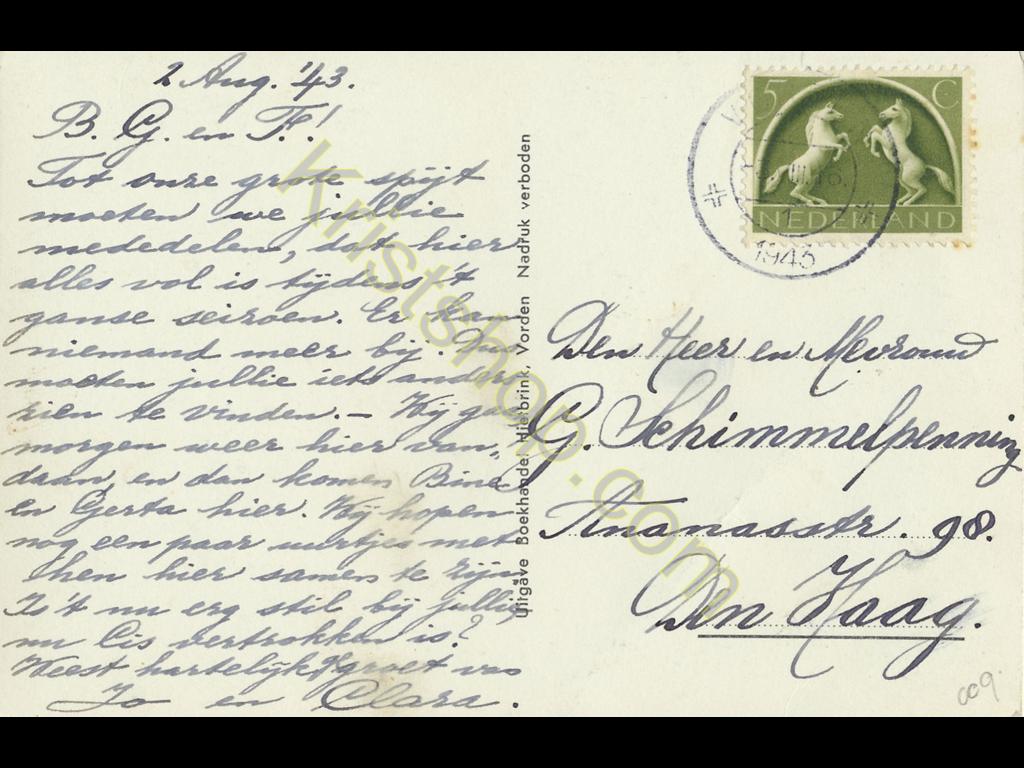 2 Aug. '43.
B. G. en F.!
Tot onze grote spijt
moeten we jullie
mededelen, dat hier
alles vol is tijdens 't
ganse seizoen. Er kan
niemand meer bij. Dus
moeten jullie iets anders
zien te vinden. – Wij gaan
morgen weer hier van-
daan, en dan komen Bina
en Gerta hier. Wij hopen
nog een paar uurtjes met
hen hier samen te zijn.
Is 't nu erg stil bij jullie,
nu Cis vertrokken is?
Weest hartelijk gegroet van
Jo en Clara.
Uitgave Boekhandel Hietbrink, Vorden Nadruk verboden
5 C
NEDERLAND
1943
Den Heer en Mevrouw
G. Schimmelpenning
Ananasstr. 98.
Den Haag.
009.
Kristshop.com